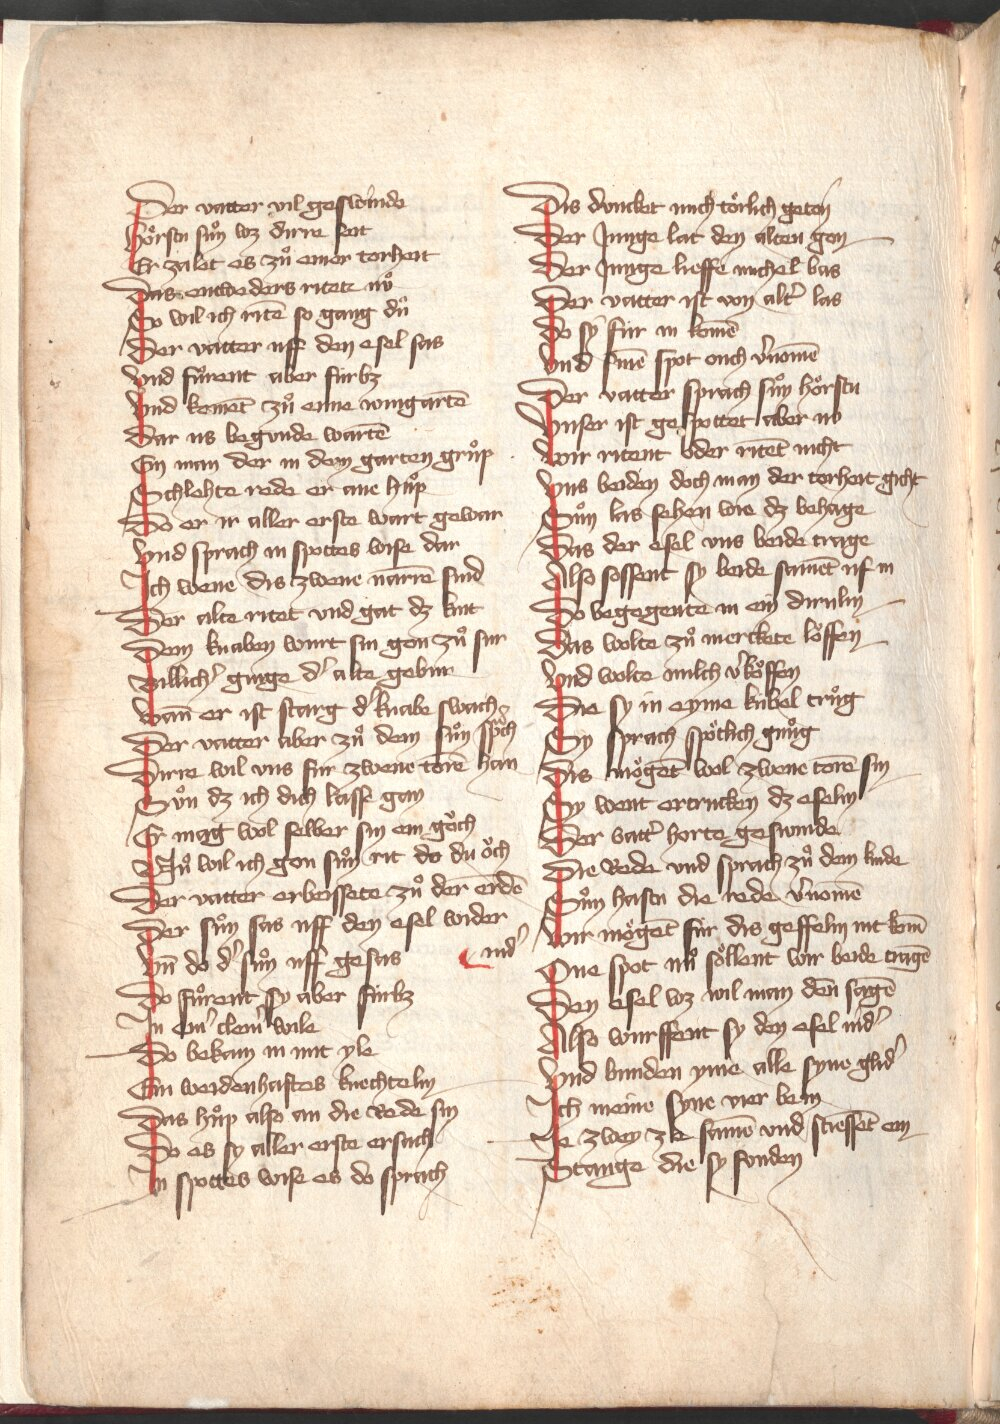 Der vatter vil geswinde
Hoͤrstu suͦn wz dirre seit
Er zalet es zuͦ einer torheit
Das entweders ritete nuͦ
So wil ich ritē so gang duͦ
Der vatter uff den esel sas
Vnd fuͦrent aber fúrbz
Vnd komēt zuͦ eime wingartē
Dar us begunde wartē
Ein man der in dem garten gruͦp
Schlehte rede er ane huͦp
Do er ir aller erste wart gewar
Vnd sprach in spottes wise dar
Ich wene dis zwene narrē sind
Der alte ritet vnd gat dz kint
Dem knaben wurt sin gon zuͦ sur
Billich' ginge d' alte gebur
Wan er ist starg d' knabe swach
Der vatter aber zuͦ dem suͦn spͣch
Dirre wil vns fúr zwene torē han
Suͦn dz ich dich lasse gan
Er mag wol selber sin ein goͮch
Nuͦ wil ich gon suͦn rit do du oͮch
Der vatter erbeissete zuͦ der erdē
nid'
Der suͦn sas uff den esel wider
Vn̄ do d' suͦn uff gesas
Do fuͦrent sy aber fúrbz
In ein' clein' wile
Do bekam in mit yle
Ein weidenhaftes knechtelin
Das huͦp also an die rede sin
Do es sy aller erste ersach
In spottes wise es do sprach
Dis duncket mich toͤrlich geten
Der Junge lat den alten gon
Der Junge lieffe michel bas
Der vatter ist von alt' las
Do sy fúr in komē
Vnd sine spot ouch v'nomē
Der vatter sprach suͦn hoͤrstu
Vnser ist gespottet aber nu
Wir ritent oder ritēt nicht
Vns beiden doch man der torheit gicht
Suͦn las sehen wie dz behage
Das der esel vns beide trage
Also sossent sy beide samēt uf in
Do begegente in ein dirnlin
Das wolte zuͦ merckete loͮffen
Vnd wolte milch v'koͮffen
Die sy in eyme kúbel truͦg
Sy sprach spoͤtlich gnuͦg
Dis moͤgēt wol zwene torē sin
Sy went ertrucken dz eselin
Der vatt' horte geswinde
Die Rede vnd sprach zuͦ dem kinde
Suͦn hastu die rede v'nomē
Wir moͤgēt fúr dis geffelin nit komē
One spot nuͦ soͤllent wir beide tragē
Den esel wz wil man den sagē
Also wurffent sy den esel nid'
Vnd bunden yme alle syne glid'
Ich meine syne vier bein
Je zwey ze samē vnd stiessēt ein
Stange die sy fonden